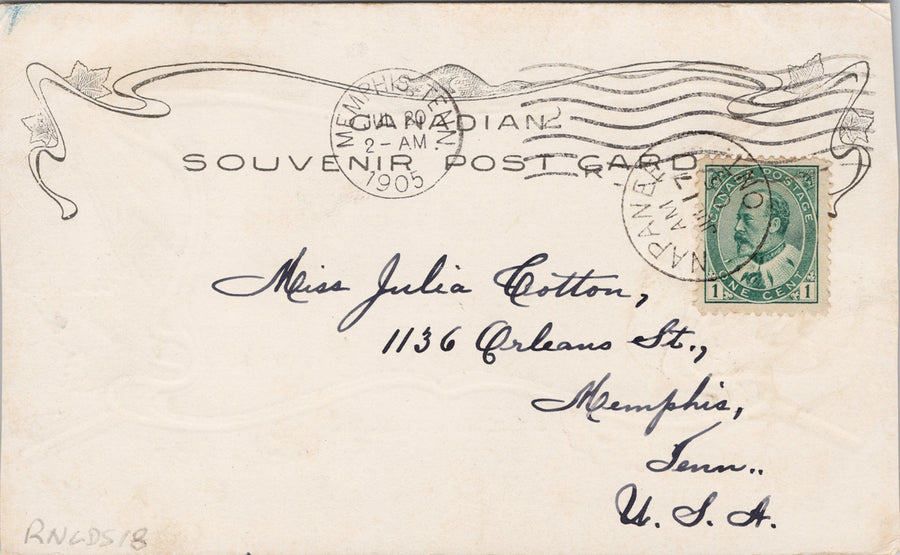 MEMPHIS, TENN.
JUL 20
2-AM
1905
CANADIAN
SOUVENIR POST CARD
NAPANEE
AM
CANADA POSTAGE
1 ONE CENT 1
Miss Julia Cotton,
1136 Orleans St.,
Memphis,
Tenn..
U. S. A.